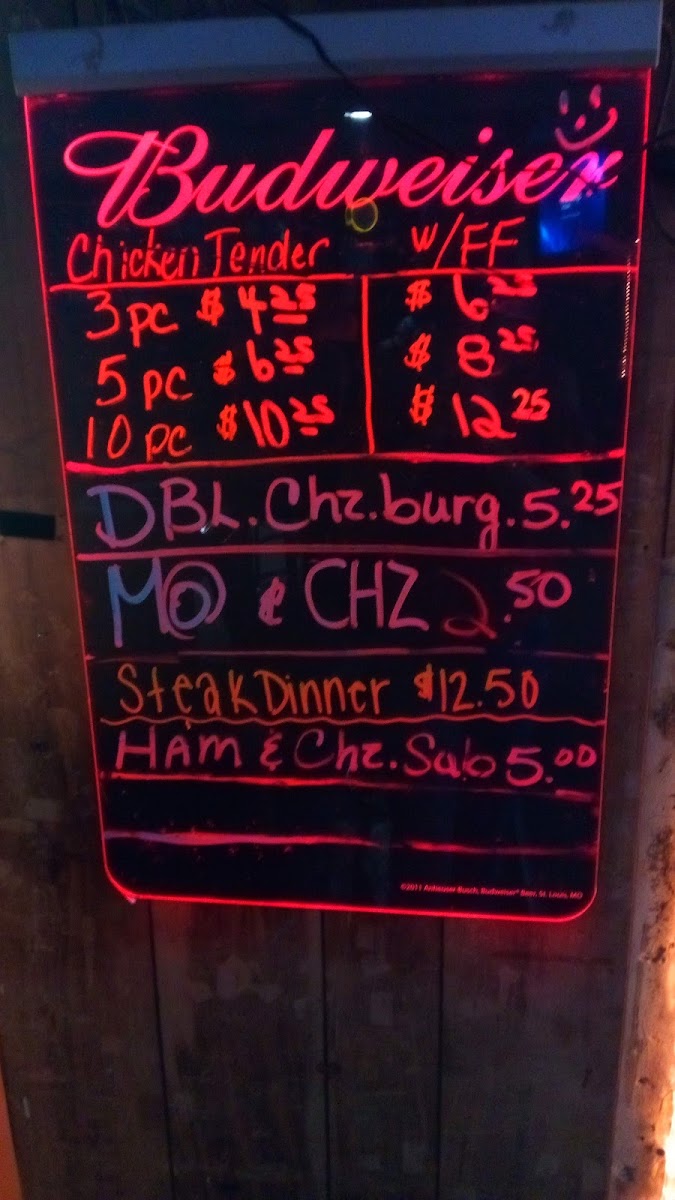 Budweiser
Chicken Tender w/FF
3 pc $ 4.25 $ 6.25
5 pc $ 6.25 $ 8.25
10 pc $10.25 $ 12.25
DBL. Chz. burg. 5.25
MO & CHZ 2.50
Steak Dinner $12.50
HAM & Chz. Sub 5.00
©2011 Anheuser-Busch, Budweiser® Beer, St. Louis, MO